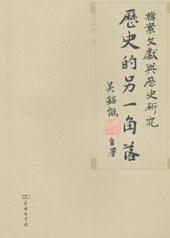 檔案文獻與歷史研究
歷史的另一角落
吳銘能
自署
商務印書館